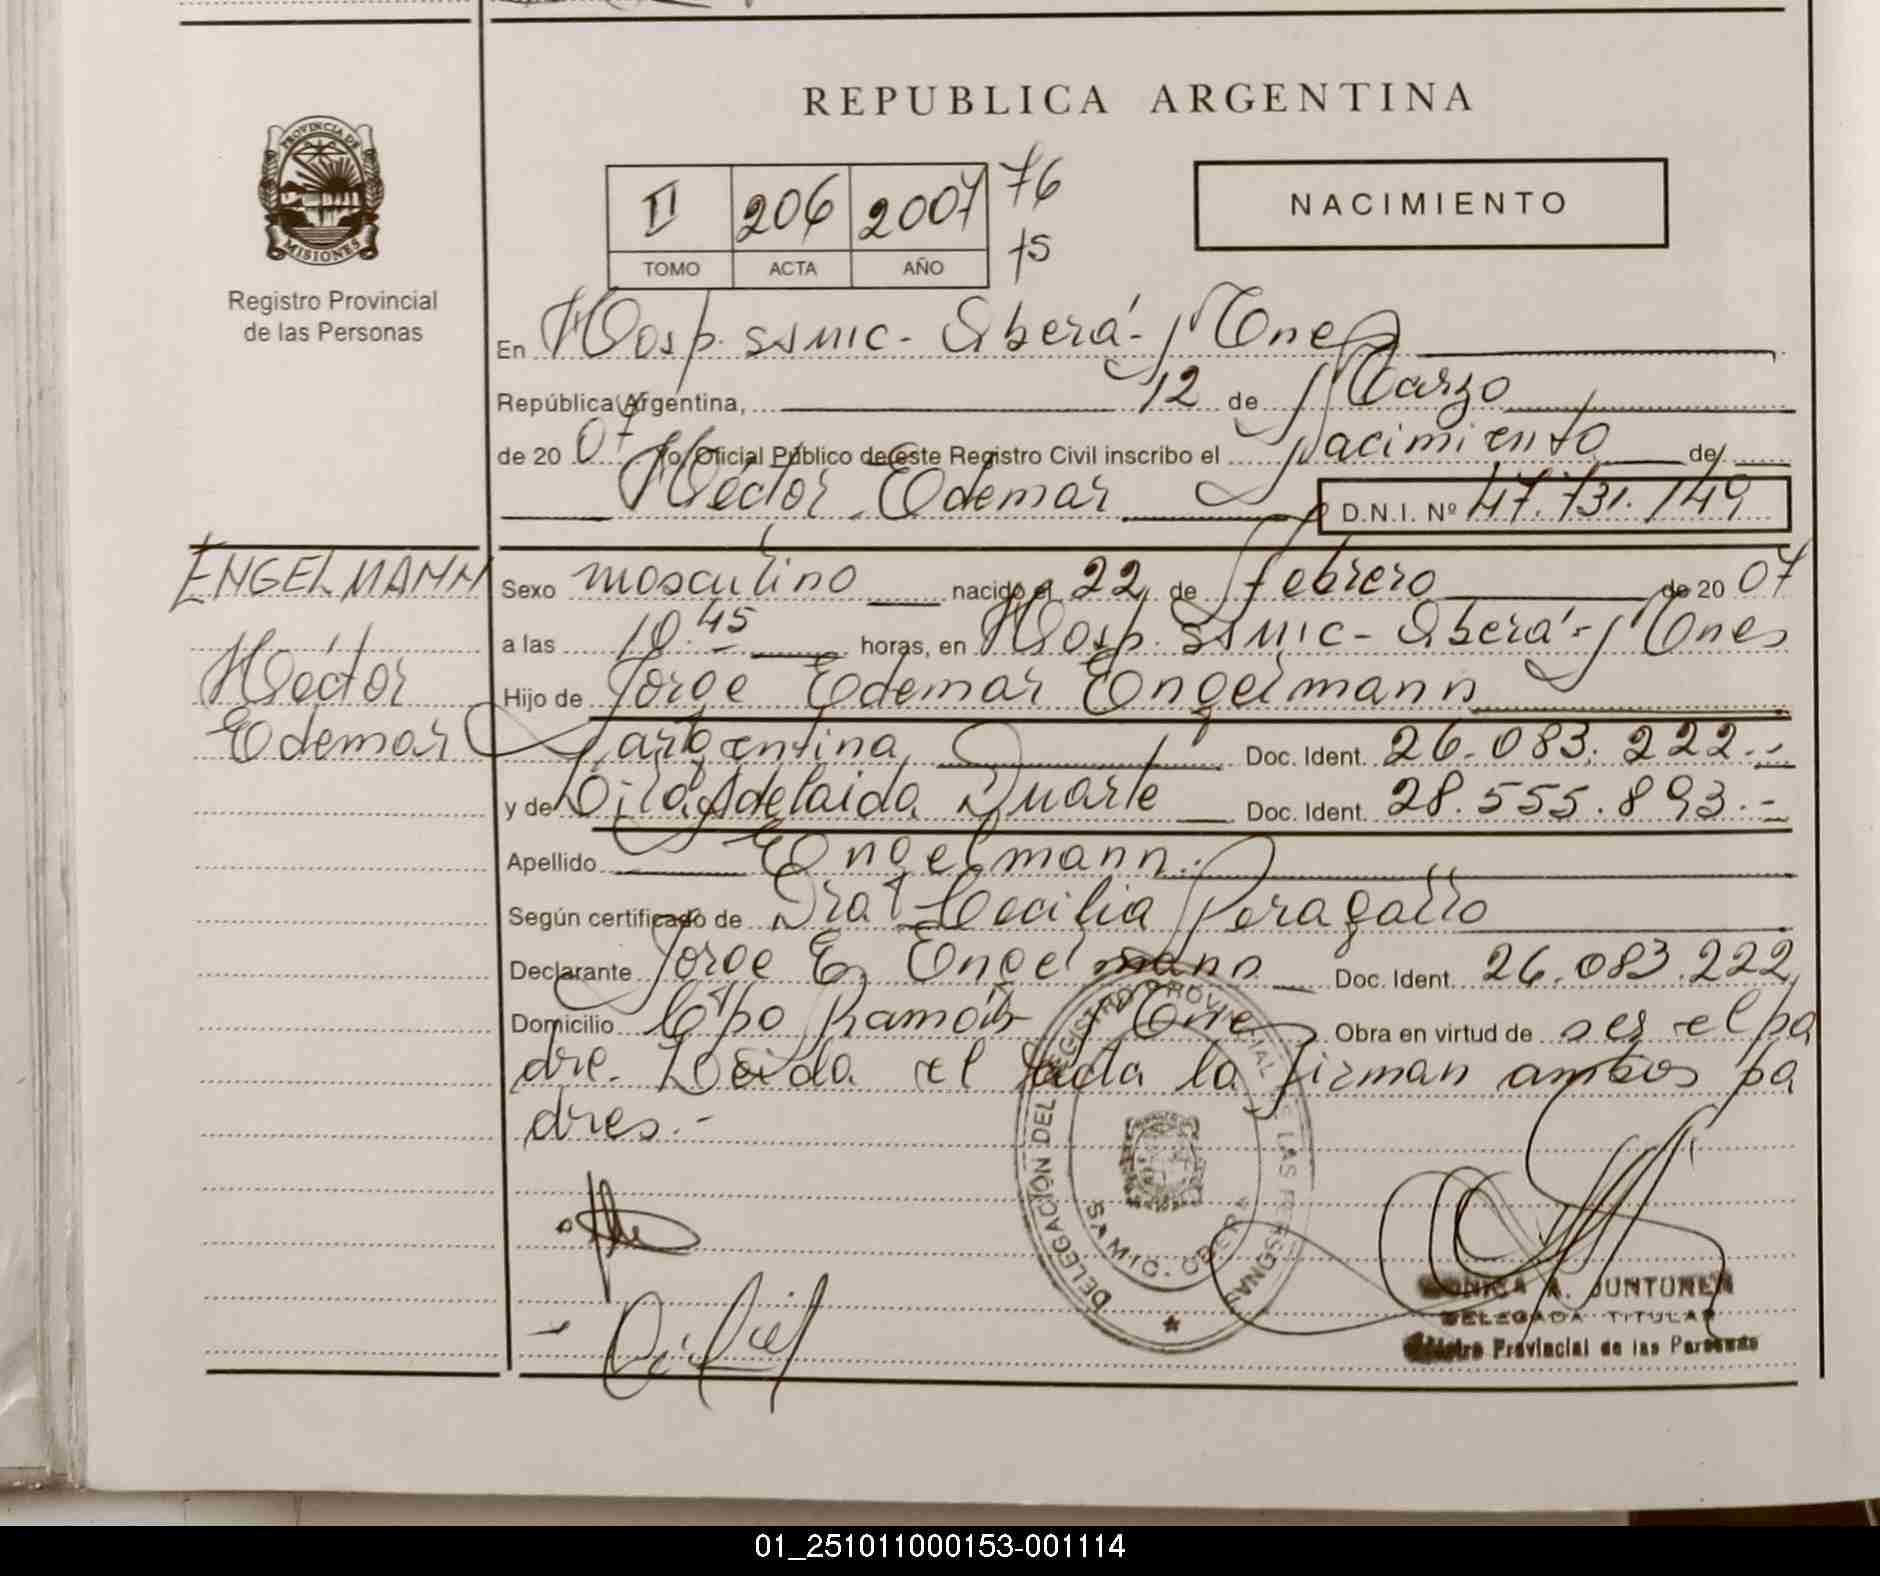 REPUBLICA ARGENTINA
PROVINCIA DE
MISIONES
Registro Provincial
de las Personas
II 206 2007 76
TOMO ACTA AÑO 75
NACIMIENTO
En Hosp. SAMIC - Oberá - Mnes
República Argentina, 12 de Marzo
de 20 07 Yo, Oficial Público de este Registro Civil inscribo el Nacimiento de
Héctor Edemar D.N.I. Nº 47.731.149
ENGELMANN
Héctor
Edemar
Sexo masculino nacido el 22 de febrero de 20 07
a las 10.45 horas, en Hosp. SAMIC - Oberá - Mnes
Hijo de Jorge Edemar Engelmann
argentina Doc. Ident. 26.083.222.-
y de Adelaida Duarte Doc. Ident. 28.555.893.-
Apellido Engelmann.
Según certificado de Dra. Cecilia Peragallo
Declarante Jorge E. Engelmann Doc. Ident. 26.083.222
Domicilio Cpo Ramón Mnes Obra en virtud de ser el pa
dre. Leída el acta la firman ambos pa
dres.-
DELEGACIÓN DEL REGISTRO PROVINCIAL DE LAS PERSONAS
SAMIC. OBERA
MONICA A. JUNTUNEN
DELEGADA TITULAR
Registro Provincial de las Personas
01_251011000153-001114